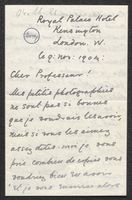 Royal Palace Hotel
Kensington
London. W.
le 9. nov: 1904:
Cher Professeur!
Mes petites photographies
ne sont pas si bonnes
que je voudrais les avoir,
mais si vous les aimez
assez, dites-moi, je vous
prie combien de copies vous
voudriez bien en avoir
et je vous enverrai alors